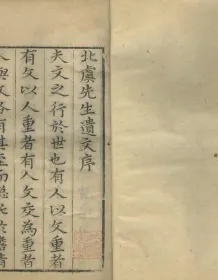 北虞先生遺文序
夫文之行於世也有人以文重者
有文以人重者有人文交為重者